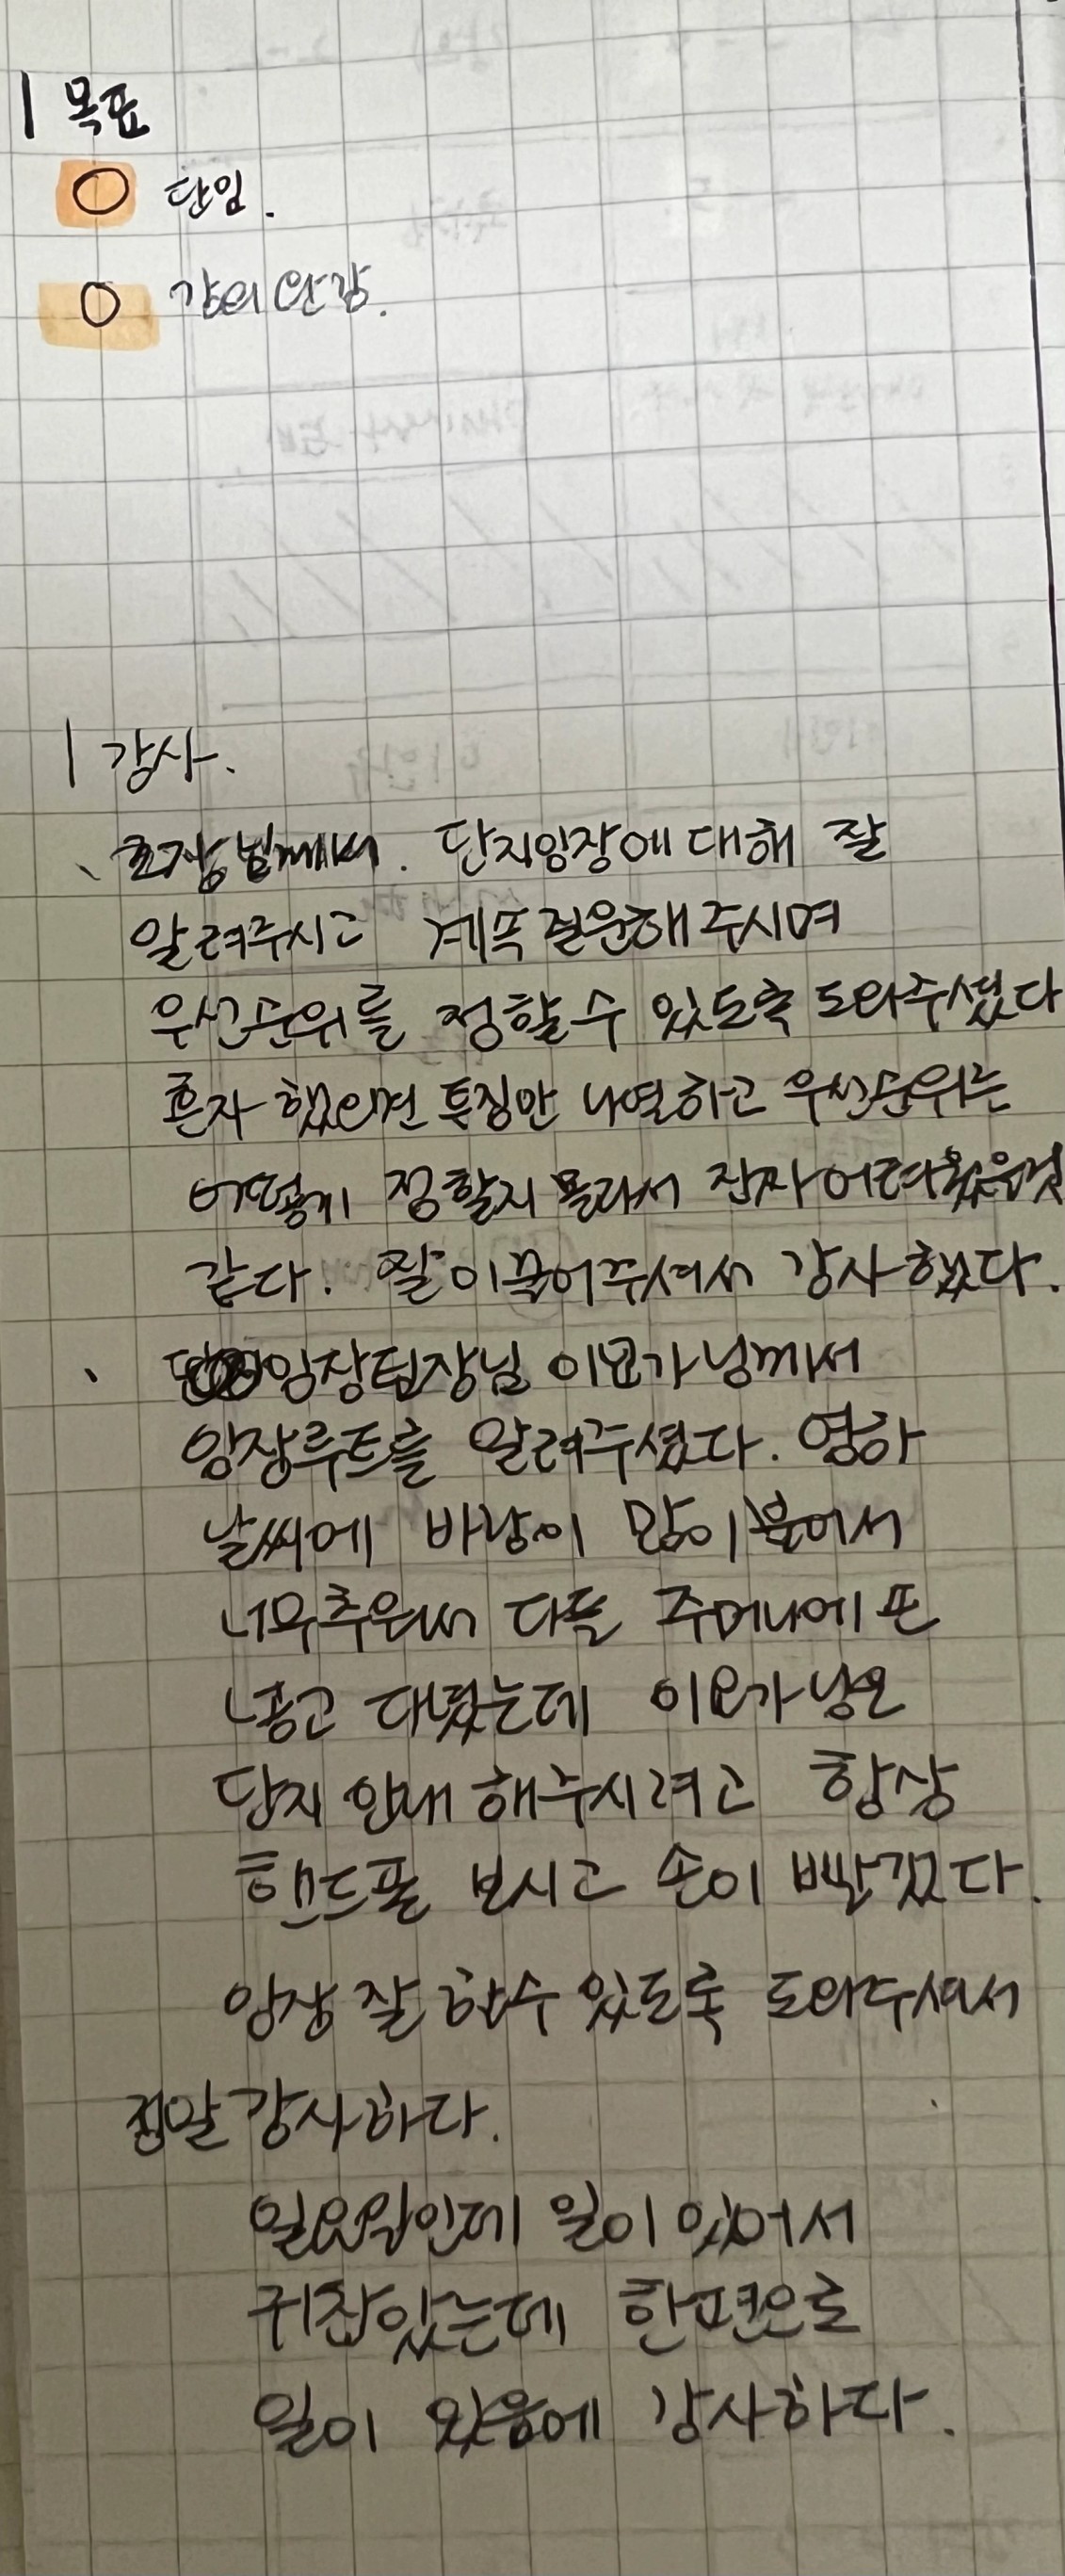 | 목표
○ 단임.
○ 강의완강.
| 감사.
조장님께서. 단지임장에 대해 잘
알려주시고 계속 질문해주시며
우선순위를 정할 수 있도록 도와주셨다
혼자 했으면 특징만 나열하고 우선순위는
어떻게 정할지 몰라서 진짜 어려웠을것
같다. 잘 이끌어주셔서 감사했다.
임장팀장님 이요가님께서
임장루트를 알려주셨다. 영하
날씨에 바람이 많이 불어서
너무추워서 다들 주머니에 손
넣고 다녔는데 이요가님은
단지 안내 해주시려고 항상
핸드폰 보시고 손이 빨갰다.
임장 잘 할수 있도록 도와주셔서
정말 감사하다.
일요일인데 일이 있어서
귀찮았는데 한편으로
일이 있음에 감사하다.